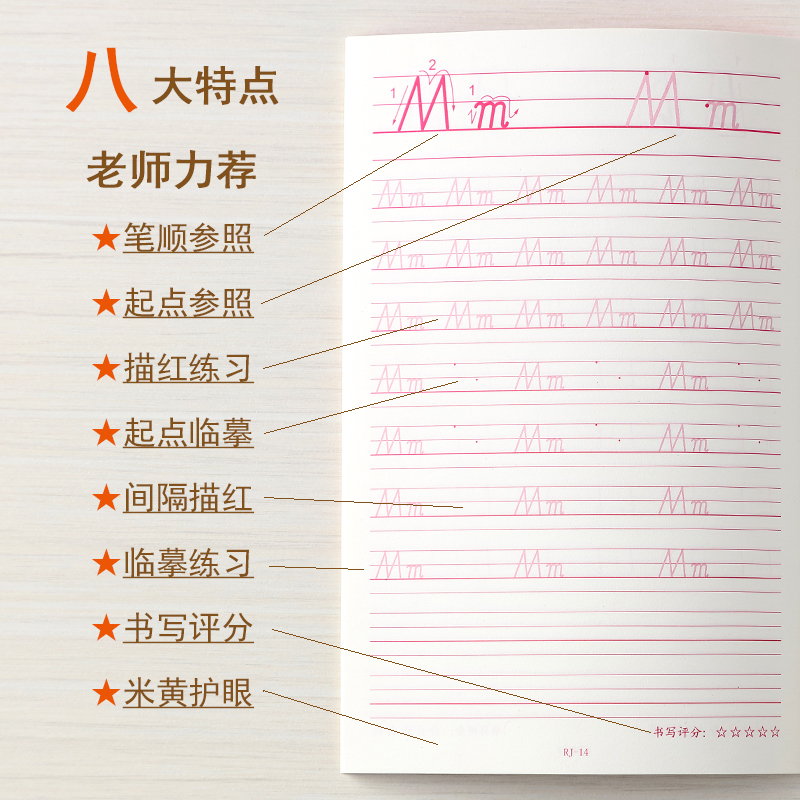 八大特点
老师力荐
★笔顺参照
★起点参照
★描红练习
★起点临摹
★间隔描红
★临摹练习
★书写评分
★米黄护眼
1 2 M 1 m M m
Mm Mm Mm Mm Mm Mm
Mm Mm Mm Mm Mm Mm
Mm Mm Mm Mm Mm Mm
Mm Mm Mm
Mm Mm Mm
Mm Mm Mm
Mm Mm Mm
书写评分：☆☆☆☆☆
RJ-14